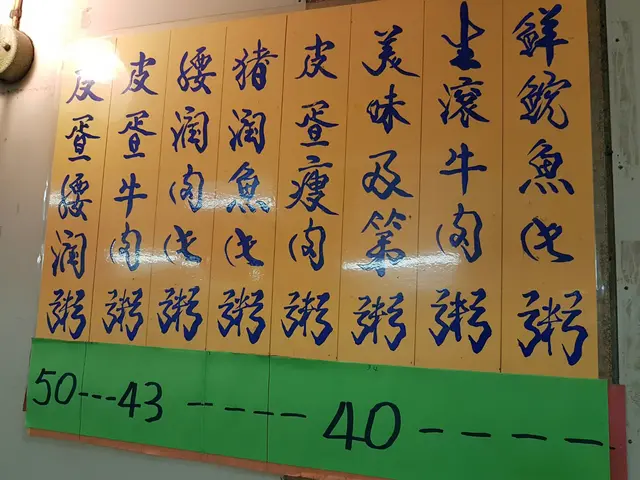 鮮鯇魚片粥
生滾牛肉粥
美味及第粥
皮疍瘦肉粥
猪潤魚片粥
腰潤肉片粥
皮疍牛肉粥
皮疍腰潤粥
50---43 ---- 40 ----